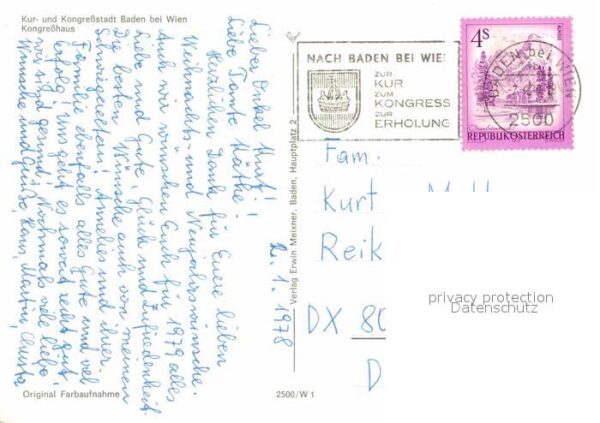 Kur- und Kongreßstadt Baden bei Wien
Kongreßhaus
Lieber Onkel Kurt!
Liebe Tante Käthe!
Herzlichen Dank für Eure lieben
Weihnachts- und Neujahrswünsche.
Auch wir wünschen Euch für 1979 alles
Liebe und Gute, Glück und Zufriedenheit.
Die besten Wünsche auch von meinen
Schwiegereltern! Annelies und ihrer
Familie ebenfalls alles Gute und viel
Erfolg! Uns geht es soweit recht gut,
wir sind gesund! Nochmals viele liebe
Wünsche und Grüße, Hans, Martin, Christa
2. 1. 1978
Original Farbaufnahme
Verlag Erwin Meixner, Baden, Hauptplatz 2
2500/W 1
NACH BADEN BEI WIE
ZUR
KUR
ZUM
KONGRESS
ZUR
ERHOLUNG
4S
BADEN bei WIEN
2500
REPUBLIK ÖSTERREICH
Fam.
Kurt
Reik
DX 80
D
privacy protection
Datenschutz